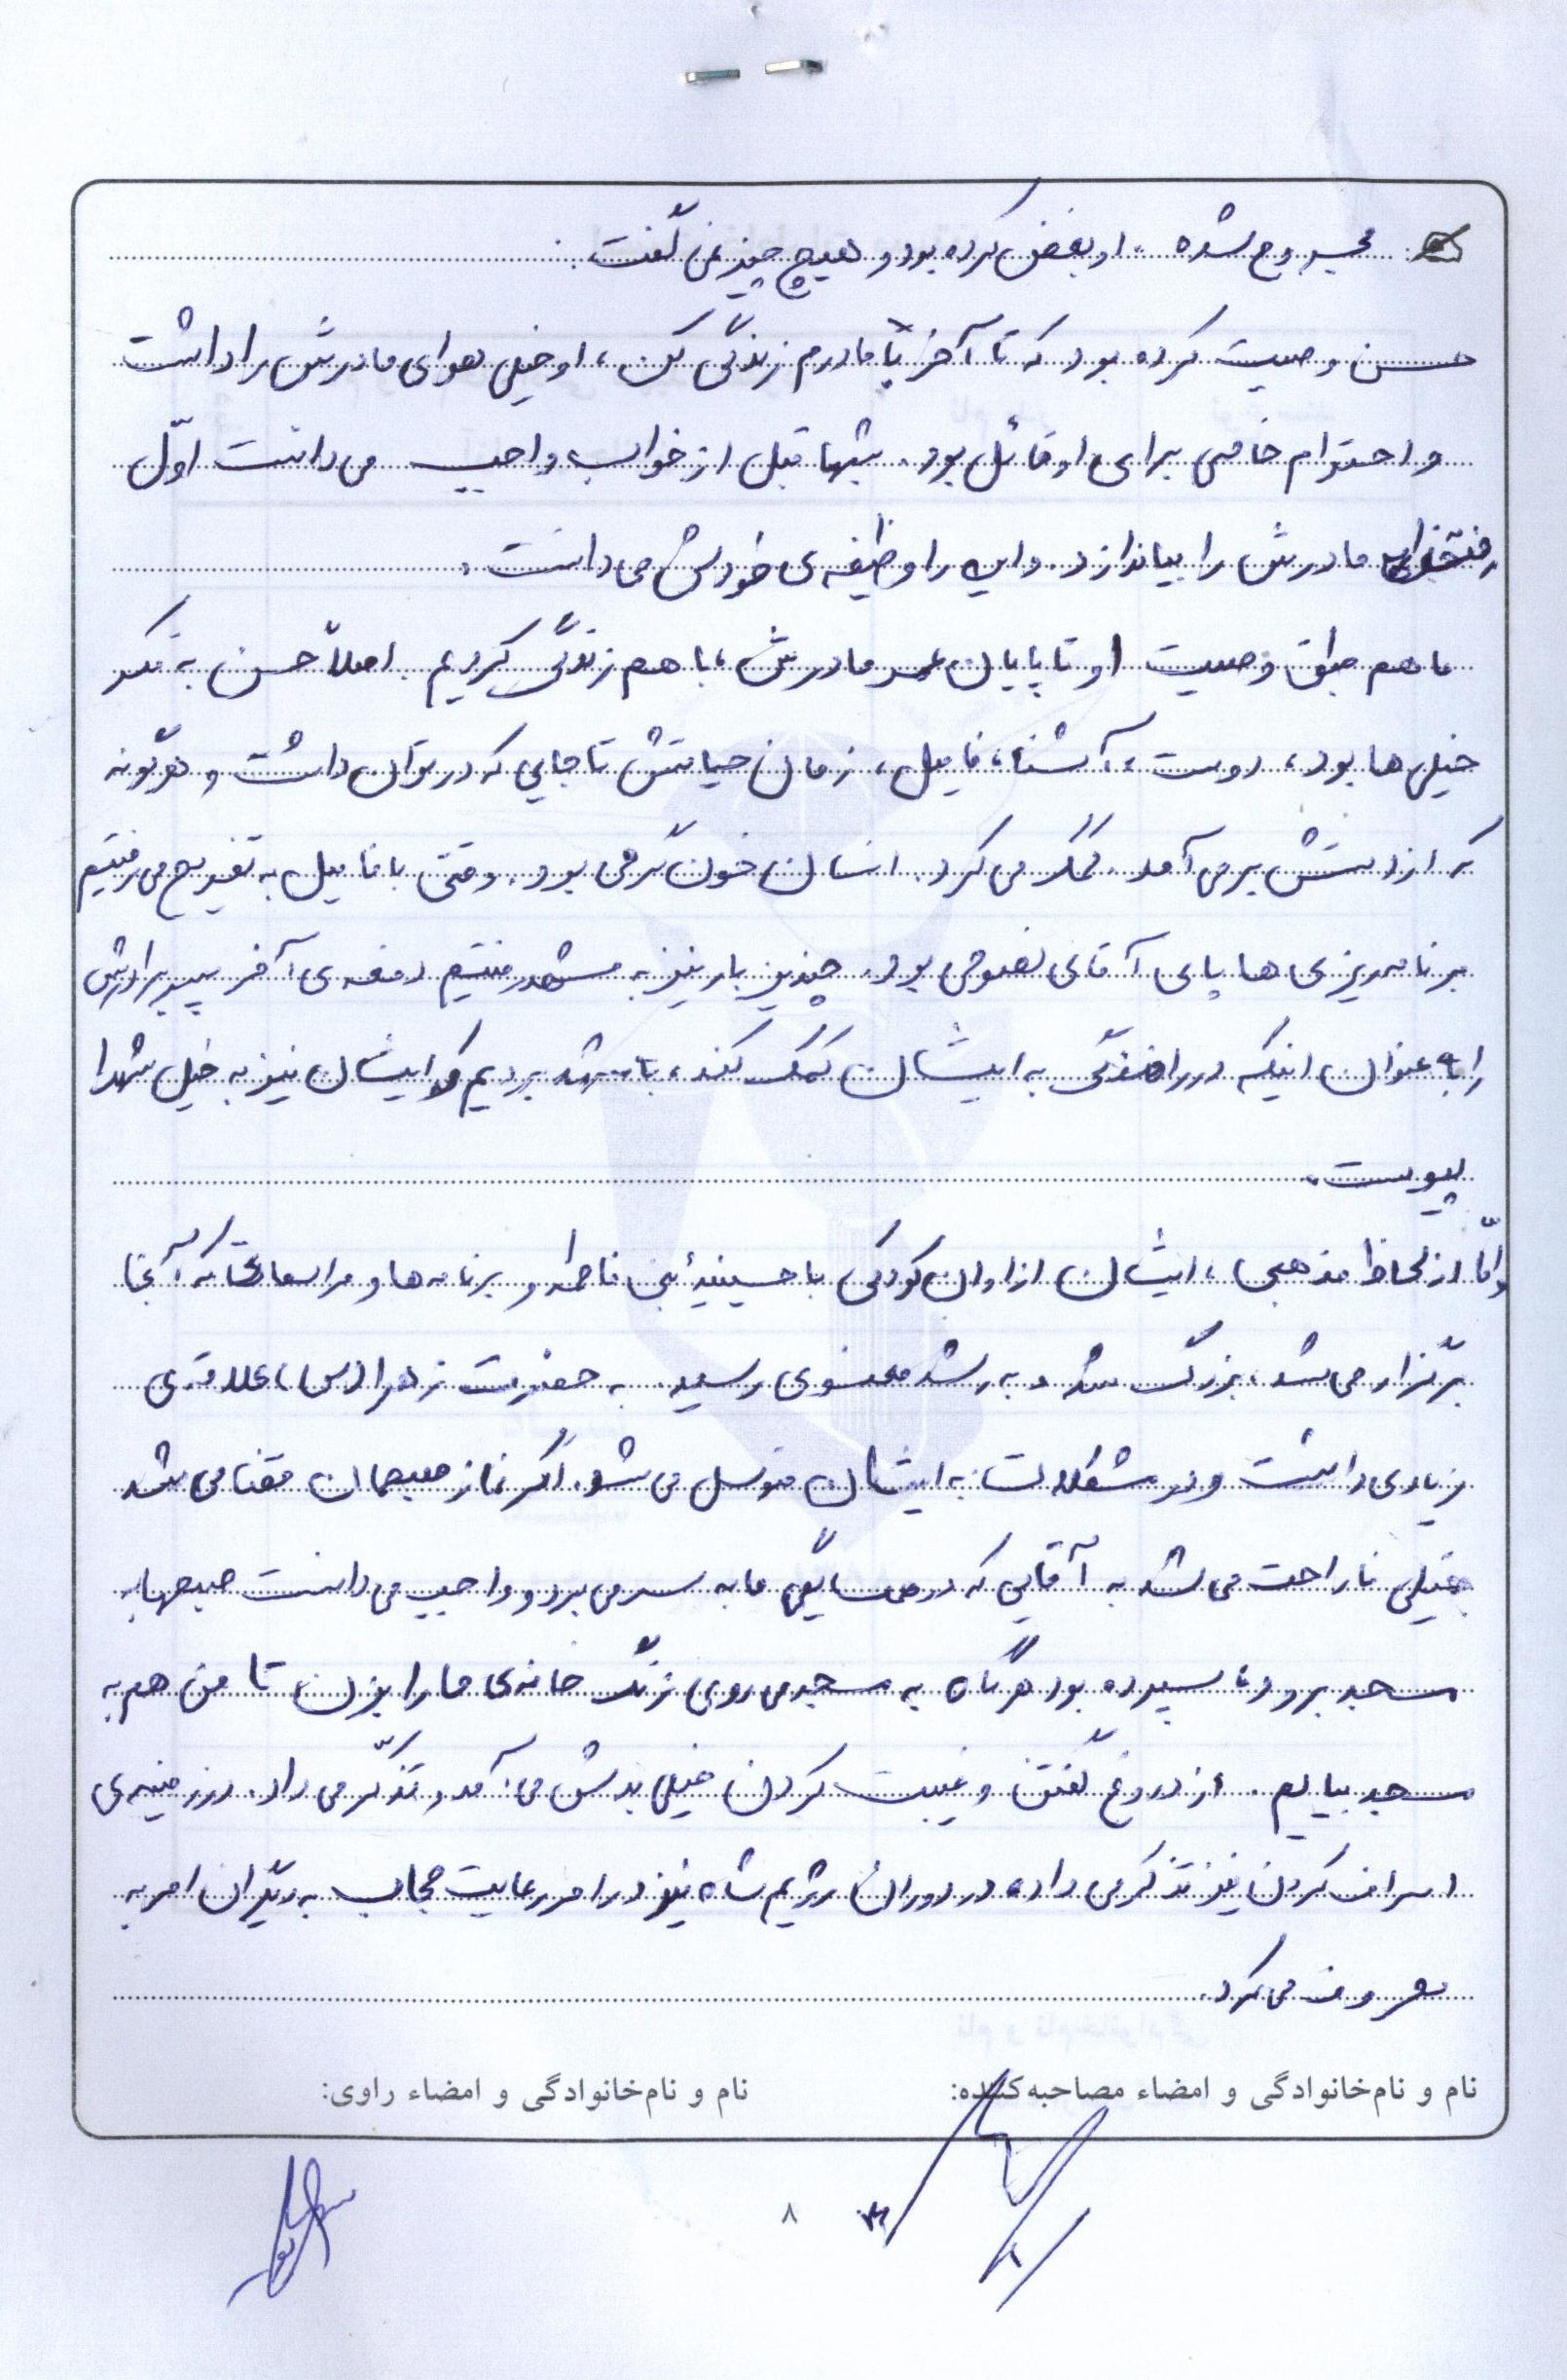 مجروح شده. او بغض کرده بود و هیچ چیز نمی گفت.
حسن وصیت کرده بود که تا آخر با مادرم زندگی کن، او خیلی هوای مادرش را داشت
و احترام خاصی برای او قائل بود. شبها قبل از خواب واجب می دانست اوّل
رختخواب مادرش را بیاندازد. و این را وظیفه ی خودش می دانست.
ما هم طبق وصیت او تا پایان عمر مادرش، با هم زندگی کردیم. اصلاً حسن به فکر
خیلی ها بود، دوست، آشنا، فامیل، زمان حیاتش تا جایی که در توان داشت و هرگونه
که از دستش بر می آمد. کمک می کرد. انسان خون گرمی بود. وقتی با فامیل به تفریح می رفتیم
برنامه ریزی ها پای آقای نصوحی بود. چندین بار نیز به مشهد رفتیم دفعه ی آخر پسر برادرش
را به عنوان اینکه در رانندگی به ایشان کمک کند، با خود بردیم که ایشان نیز به خیل شهدا
پیوست.
و امّا از لحاظ مذهبی، ایشان از اوان کودکی با حسینیهٔ بنی فاطمه و برنامه ها و مراسماتی که آنجا
برگزار می شد، بزرگ شد و به رشد معنوی رسید. به حضرت زهرا (س) علاقه ی
زیادی داشت و در مشکلات به ایشان متوسل می شد. اگر نماز صبحمان قضا می شد
خیلی ناراحت می شد به آقایی که در همسایگی ما به سر می برد و واجب می دانست صبحها به
مسجد برود، سپرده بود هرگاه به مسجد می روی زنگ خانه ی ما را بزن تا من هم به
مسجد بیایم. از دروغ گفتن و غیبت کردن خیلی بدش می آمد و تذکّر می داد. در زمینه ی
اسراف کردن نیز تذکر می داد، در دوران رژیم شاه نیز در امر رعایت حجاب به دیگران امر به
معروف می کرد.
نام و نام‌خانوادگی و امضاء مصاحبه‌کننده:
نام و نام‌خانوادگی و امضاء راوی:
۸